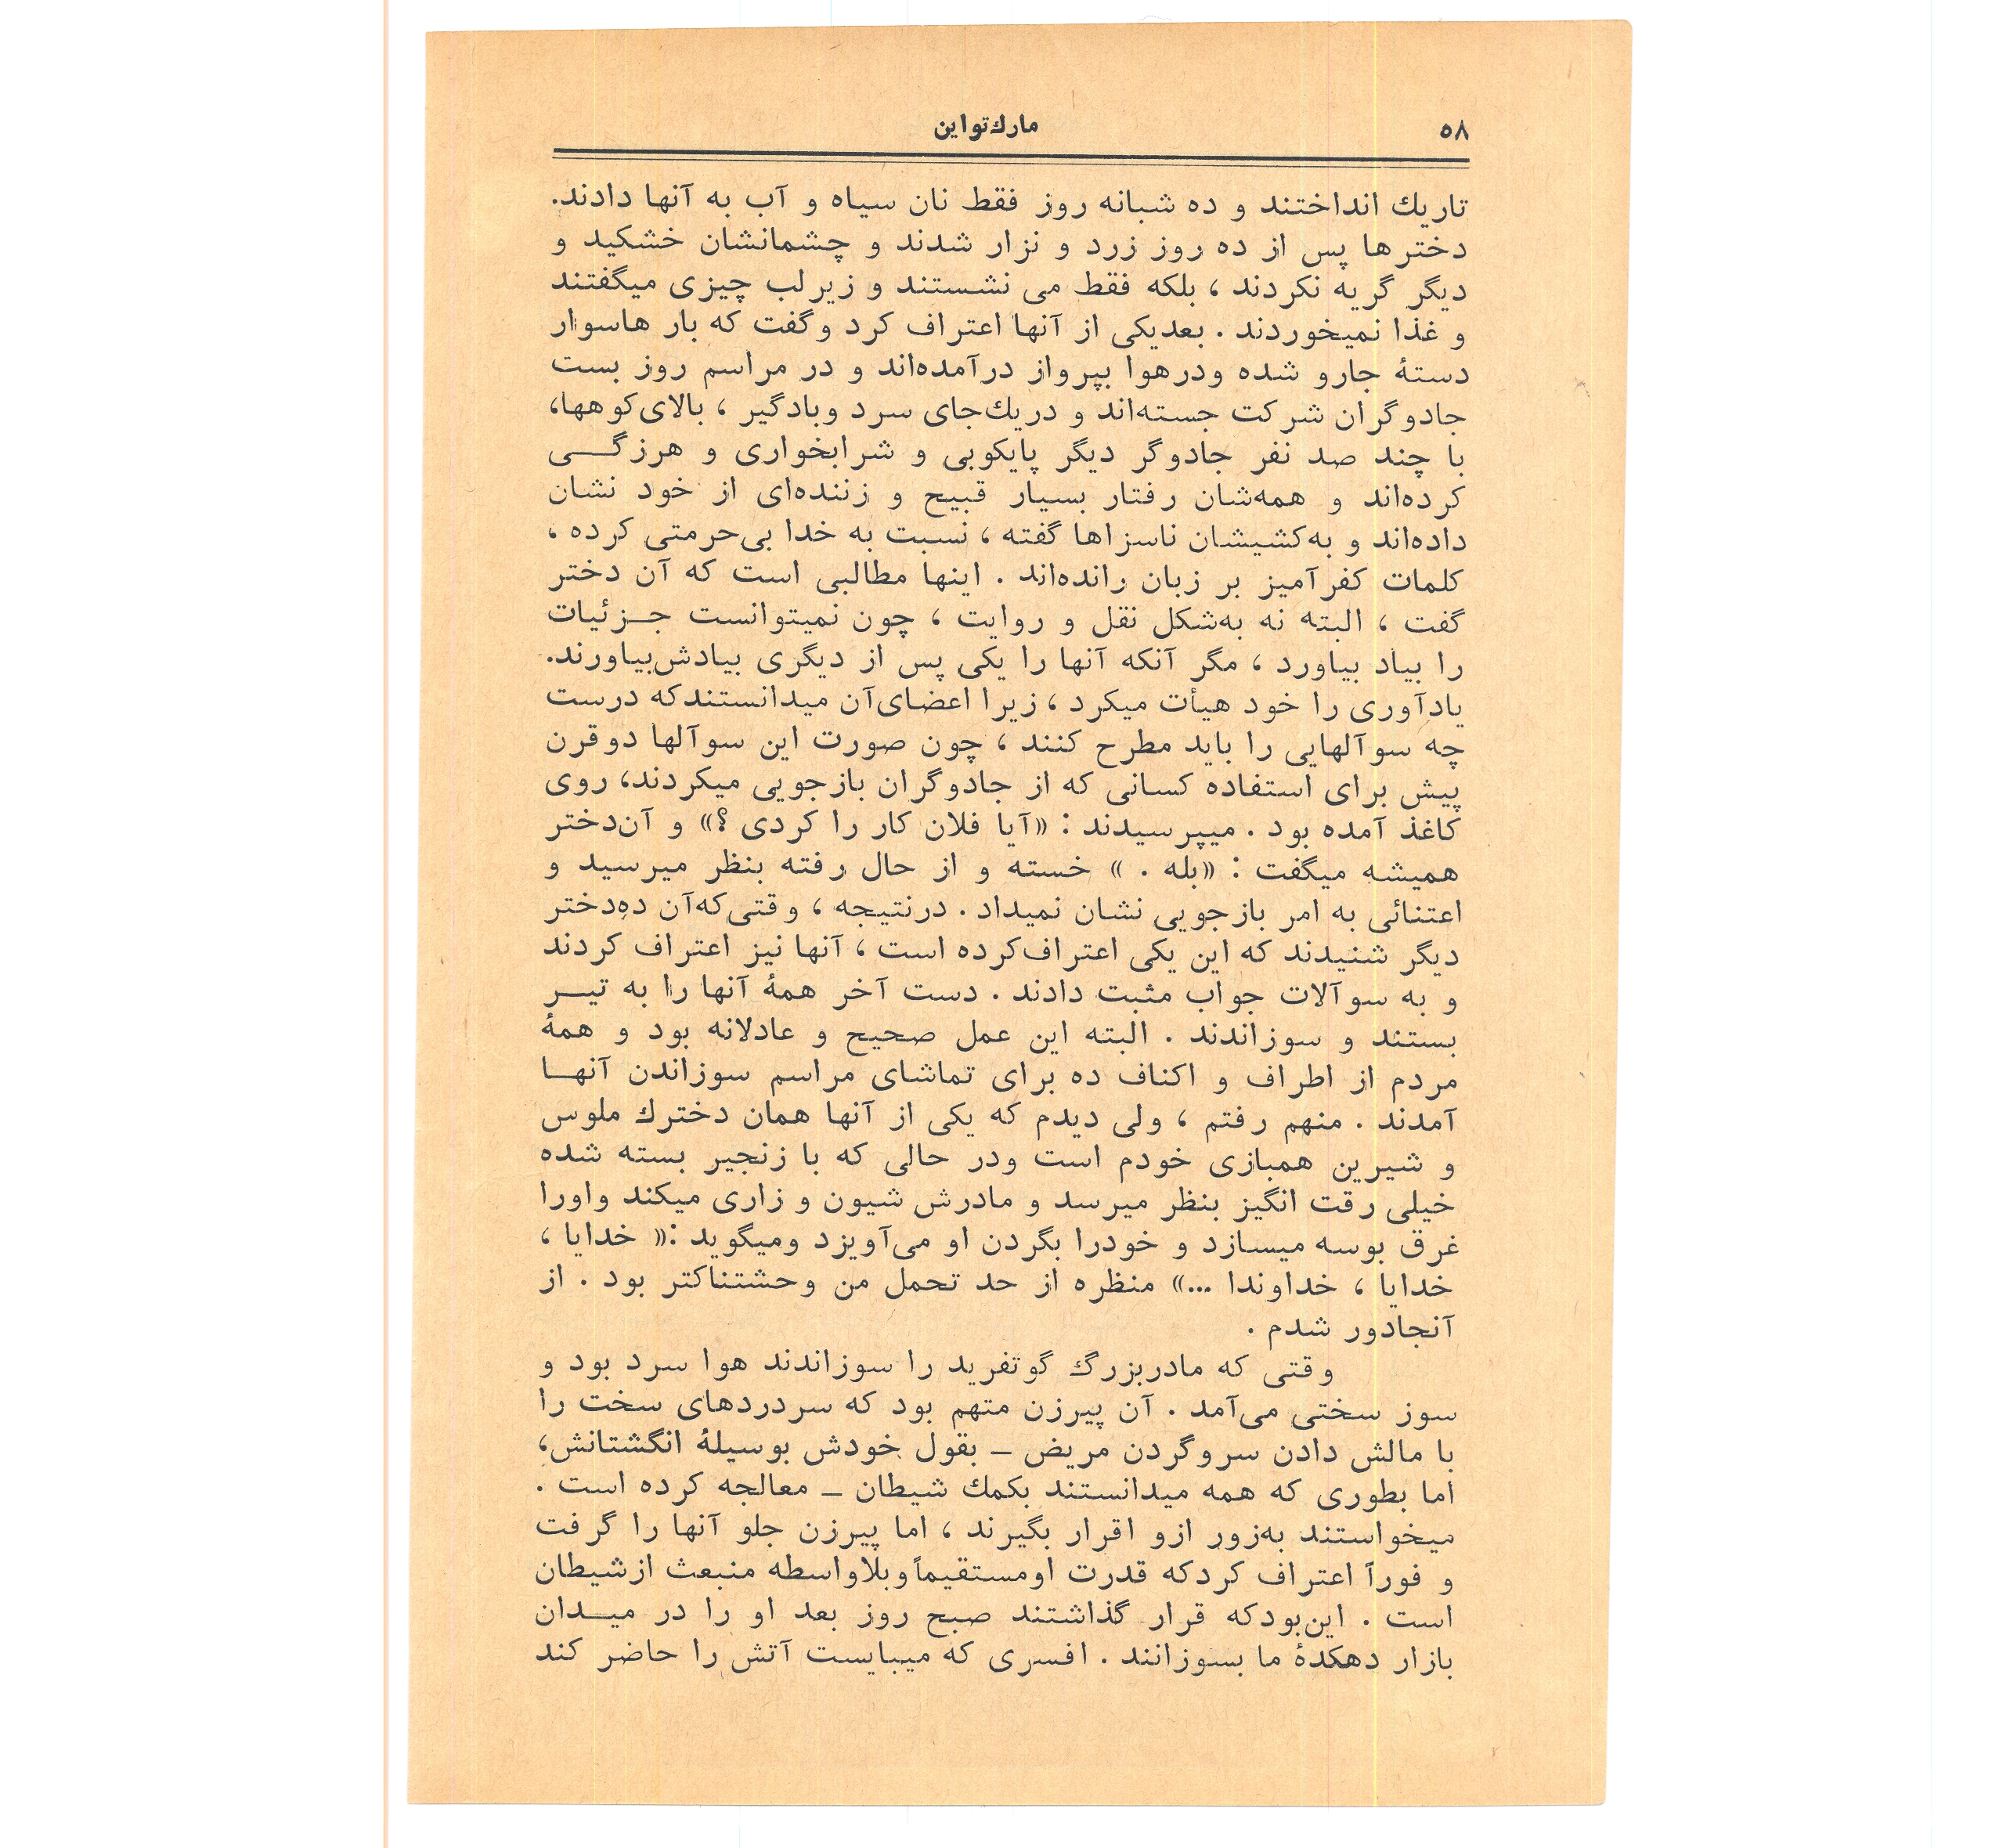 ۵۸
مارك‌تواین
تاریك انداختند و ده شبانه روز فقط نان سیاه و آب به آنها دادند.
دخترها پس از ده روز زرد و نزار شدند و چشمانشان خشکید و
دیگر گریه نکردند ، بلکه فقط می نشستند و زیرلب چیزی میگفتند
و غذا نمیخوردند . بعدیکی از آنها اعتراف کرد وگفت که بار هاسوار
دستهٔ جارو شده ودرهوا بپرواز درآمده‌اند و در مراسم روز بست
جادوگران شرکت جسته‌اند و دریك‌جای سرد وبادگیر ، بالای‌کوهها،
با چند صد نفر جادوگر دیگر پایکوبی و شرابخواری و هرزگـــی
کرده‌اند و همه‌شان رفتار بسیار قبیح و زننده‌ای از خود نشان
داده‌اند و به‌کشیشان ناسزاها گفته ، نسبت به خدا بی‌حرمتی کرده ،
کلمات کفرآمیز بر زبان رانده‌اند . اینها مطالبی است که آن دختر
گفت ، البته نه به‌شکل نقل و روایت ، چون نمیتوانست جـزئیات
را بیاد بیاورد ، مگر آنکه آنها را یکی پس از دیگری بیادش‌بیاورند.
یادآوری را خود هیأت میکرد ، زیرا اعضای‌آن میدانستندکه درست
چه سوآلهایی را باید مطرح کنند ، چون صورت این سوآلها دوقرن
پیش برای استفاده کسانی که از جادوگران بازجویی میکردند، روی
کاغذ آمده بود . میپرسیدند : «آیا فلان کار را کردی ؟» و آن‌دختر
همیشه میگفت : «بله . » خسته و از حال رفته بنظر میرسید و
اعتنائی به امر بازجویی نشان نمیداد . درنتیجه ، وقتی‌که‌آن ده‌دختر
دیگر شنیدند که این یکی اعتراف‌کرده است ، آنها نیز اعتراف کردند
و به سوآلات جواب مثبت دادند . دست آخر همهٔ آنها را به تیــر
بستند و سوزاندند . البته این عمل صحیح و عادلانه بود و همهٔ
مردم از اطراف و اکناف ده برای تماشای مراسم سوزاندن آنهـا
آمدند . منهم رفتم ، ولی دیدم که یکی از آنها همان دخترك ملوس
و شیرین همبازی خودم است ودر حالی که با زنجیر بسته شده
خیلی رقت انگیز بنظر میرسد و مادرش شیون و زاری میکند واورا
غرق بوسه میسازد و خودرا بگردن او می‌آویزد ومیگوید :« خدایا ،
خدایا ، خداوندا ...» منظره از حد تحمل من وحشتناکتر بود . از
آنجادور شدم .
وقتی که مادربزرگ گوتفرید را سوزاندند هوا سرد بود و
سوز سختی می‌آمد . آن پیرزن متهم بود که سردردهای سخت را
با مالش دادن سروگردن مریض ـ بقول خودش بوسیلهٔ انگشتانش،
اما بطوری که همه میدانستند بکمك شیطان ـ معالجه کرده است .
میخواستند به‌زور ازو اقرار بگیرند ، اما پیرزن جلو آنها را گرفت
و فوراً اعتراف کردکه قدرت اومستقیماً وبلاواسطه منبعث ازشیطان
است . این‌بودکه قرار گذاشتند صبح روز بعد او را در میـدان
بازار دهکدهٔ ما بسوزانند . افسری که میبایست آتش را حاضر کند